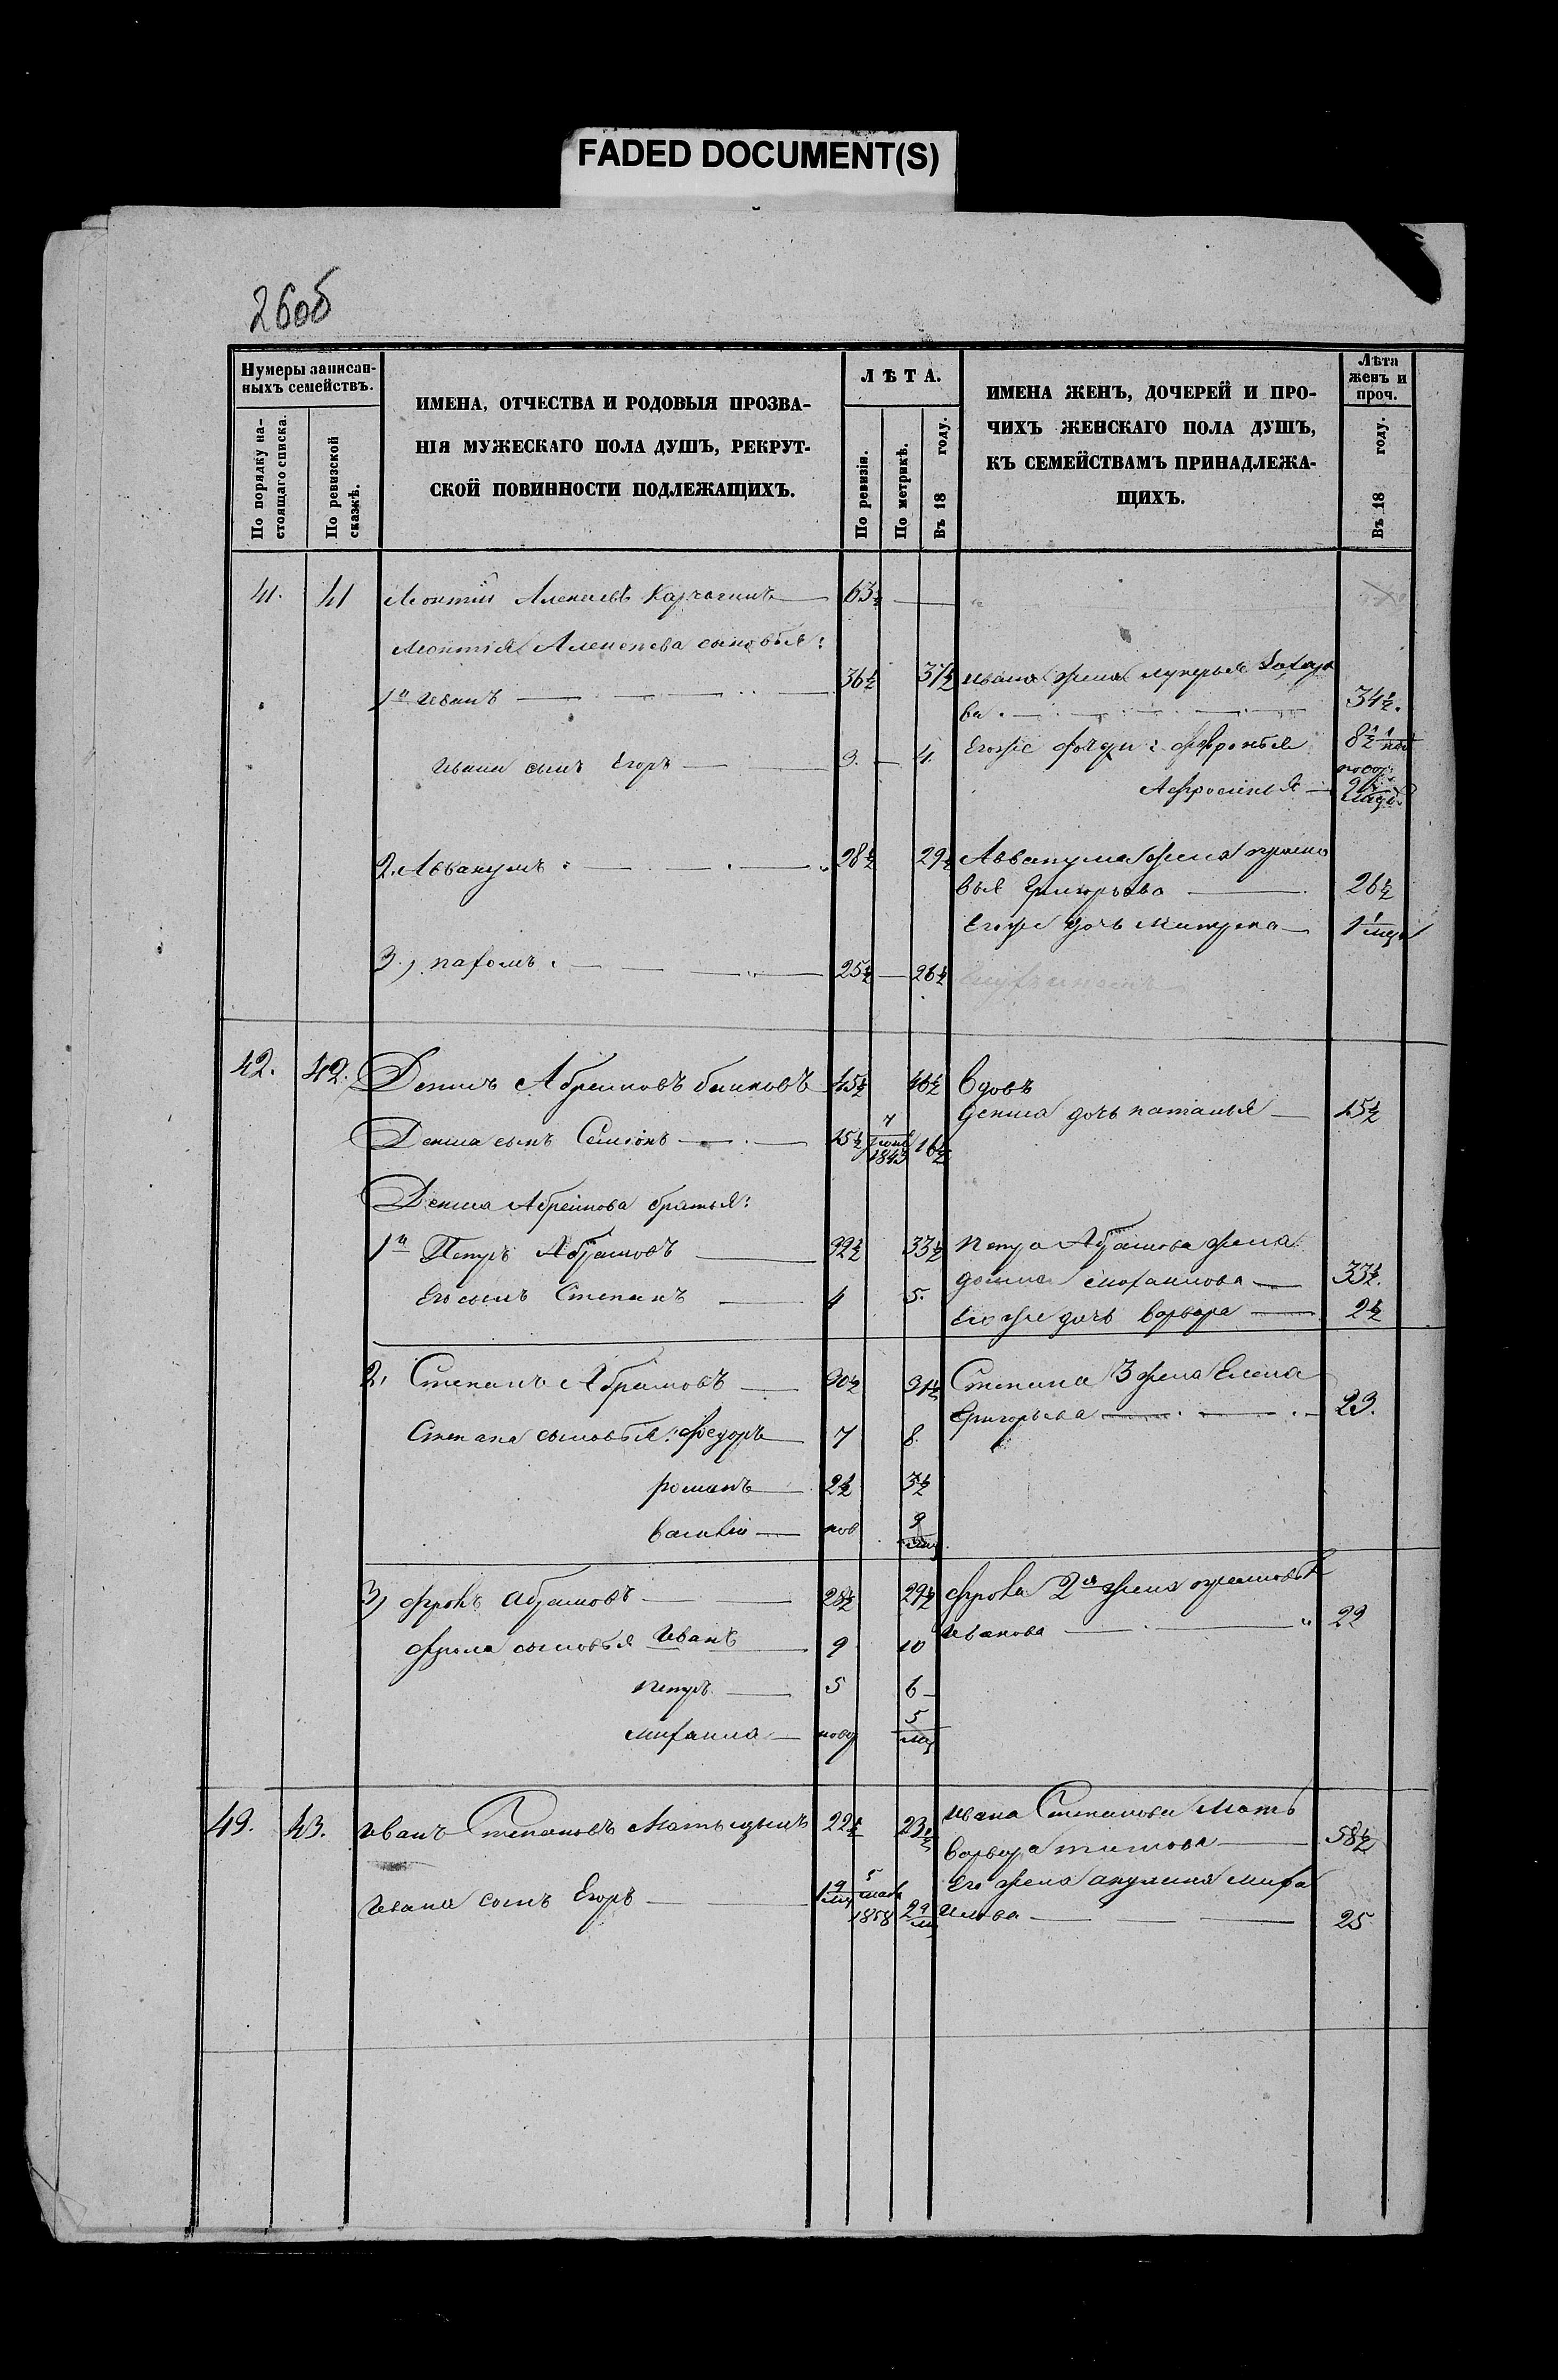 FADED DOCUMENT(S)
260б
Нумеры записан-
ныхъ семействъ.
По порядку на-
стоящаго списка.
По ревизской
сказкѣ.
ИМЕНА, ОТЧЕСТВА И РОДОВЫЯ ПРОЗВА-
НІЯ МУЖЕСКАГО ПОЛА ДУШЪ, РЕКРУТ-
СКОЙ ПОВИННОСТИ ПОДЛЕЖАЩИХЪ.
ЛѢТА.
По ревизіи.
По метрикѣ.
Въ 18 году.
ИМЕНА ЖЕНЪ, ДОЧЕРЕЙ И ПРО-
ЧИХЪ ЖЕНСКАГО ПОЛА ДУШЪ,
КЪ СЕМЕЙСТВАМЪ ПРИНАДЛЕЖА-
ЩИХЪ.
Лѣта
женъ и
проч.
Въ 18 году.
41. 41 Леонтій Алексеевъ Карчагинъ 63½
Леонтія Алексеева сыновья:
1й Иванъ 36½ 37½ Ивана жена лукерья
ва 34½.
Ивана сынъ Егоръ 3. 4. Егоже дочери: 8½
Афросинья
2. Аввакумъ 28½ 29½ Аввакума жена праско
вья Григорьева 26½
Егоже дочь Матрена 1
3., пахомъ 25½ 26½
42. 42. Денисъ Абрамовъ 45½ 46½ Вдовъ
Дениса дочь наталья 15½
Дениса сынъ Семіонъ 15½ 7 1843 16½
Дениса Абрамова братья:
1й Петръ Абрамовъ 32½ 33½ Петра Абрамова жена
домна 33½.
Его сынъ Степанъ 4 5.
Его же дочь варвара 2½
2, Степанъ Абрамовъ 30½ 31½ Степана 3 жена Елена
Григорьева 23.
Степана сыновья: Федоръ 7 8
романъ 2½ 3½
василій нов 9 мц
3, фролъ Абрамовъ 28½ 29½ фрола 2я жена прасковья
Иванова 22
Фрола сыновья Иванъ 9 10
петръ 5 6
михаила 5 мц
43. 43. Иванъ Степановъ 22½ 23½ Ивана Степанова мать
варвара титова 58½
Его жена акулина миха
Ивана сынъ Егоръ 1 9 мц 5 1858 2 9 м илова 25